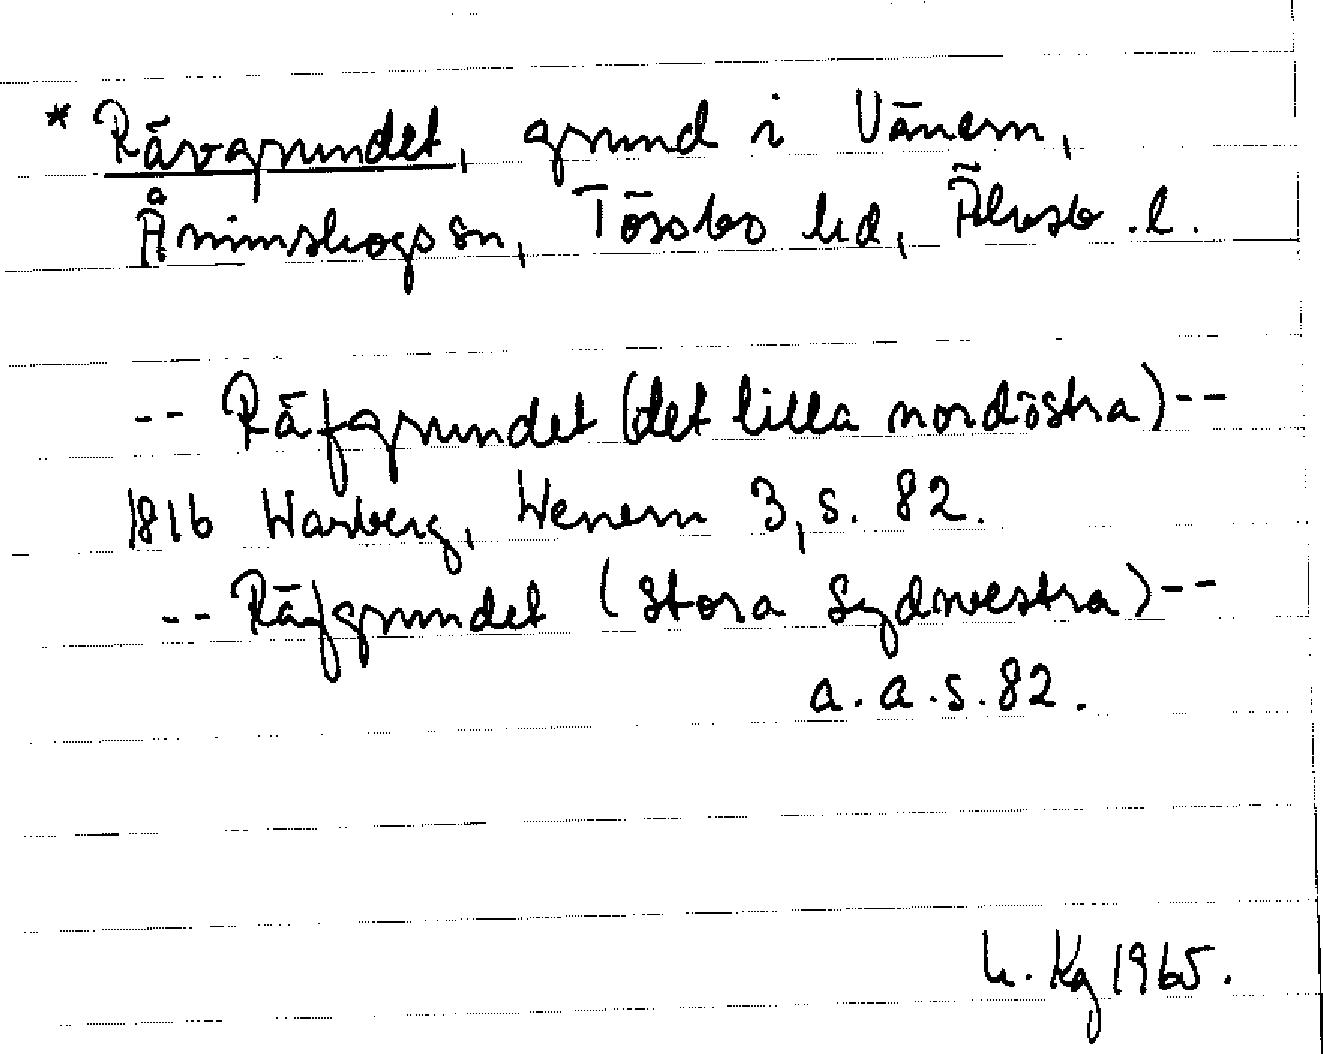 * Rävgrundet, grund i Vänern,
Ånimskogs sn, Tössbo hd, Älvsb. l.
-- Räfgrundet (det lilla nordöstra) --
1816 Warberg, Wenern 3, s. 82.
-- Räfgrundet (stora sydwestra) --
a. a. s. 82.
h. Kg 1965.